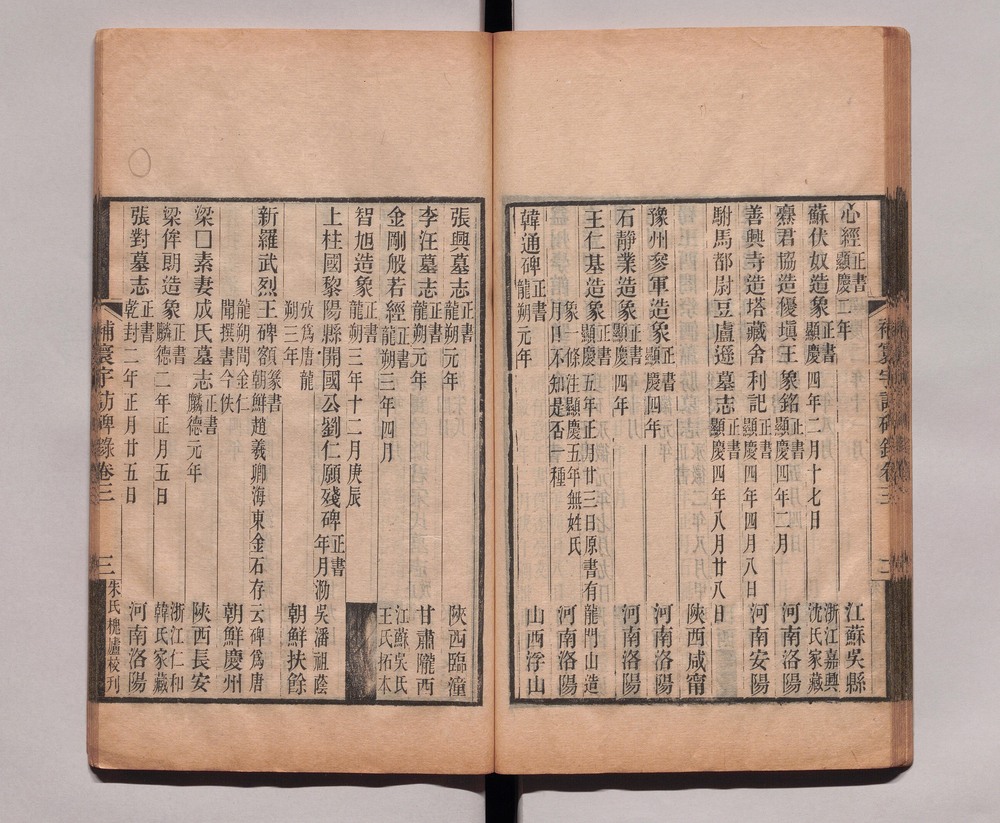 心經正書顯慶二年 江蘇吳縣
蘇伏奴造象正書顯慶四年二月十七日 浙江嘉興沈氏家藏
君協造優塡王象銘正書顯慶四年二月 河南洛陽
善興寺造塔藏舍利記正書顯慶四年四月八日 河南安陽
駙馬都尉豆盧遜墓志正書顯慶四年八月廿八日 陝西咸甯
豫州參軍造象正書顯慶四年 河南洛陽
石靜業造象正書顯慶四年 河南洛陽
王仁基造象正書顯慶五年正月廿三日原書有龍門山造
象一條注顯慶五年無姓氏
月日不知是否一種 河南洛陽
韓通碑正書龍朔元年 山西浮山
補寰宇訪碑錄卷三 二
張興墓志正書龍朔元年 陝西臨潼
李汪墓志正書龍朔元年 甘肅隴西
金剛般若經正書龍朔三年四月 江蘇吳氏王氏拓本
智旭造象正書龍朔三年十二月庚辰
上柱國黎陽縣開國公劉仁願殘碑正書年月泐吳潘祖蔭
攷爲唐龍
朔三年 朝鮮扶餘
新羅武烈王碑額篆書朝鮮趙羲卿海東金石存云碑爲唐
龍朔間金仁
聞撰書今佚 朝鮮慶州
梁囗素妻成氏墓志正書麟德元年 陝西長安
梁侔朗造象正書麟德二年正月五日 浙江仁和韓氏家藏
張對墓志正書乾封二年正月廿五日 河南洛陽
補寰宇訪碑錄卷三 三 朱氏槐廬校刊